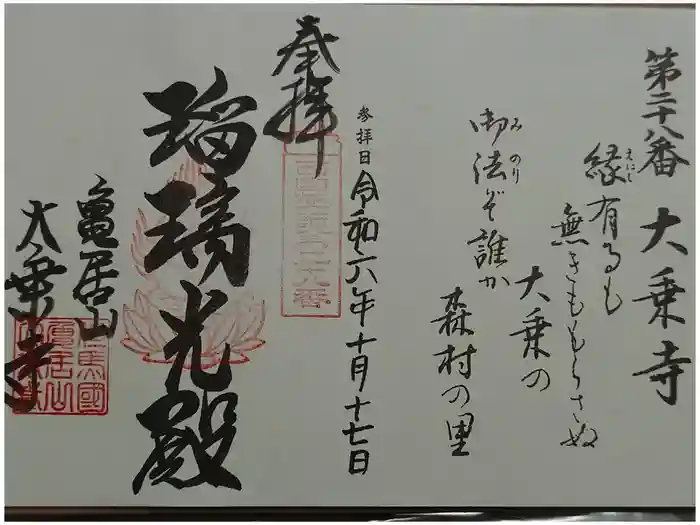 第二十八番 大乗寺
縁有るも
えにし
無きももらさぬ
大乗の
御法ぞ誰か
みのり
森村の里
参拝日 令和六年十月十七日
奉拝
瑠璃光殿
亀居山
大乗寺